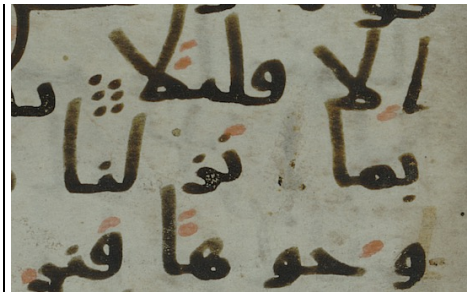 الا قليلا
بما نزلنا
وجوها فنر